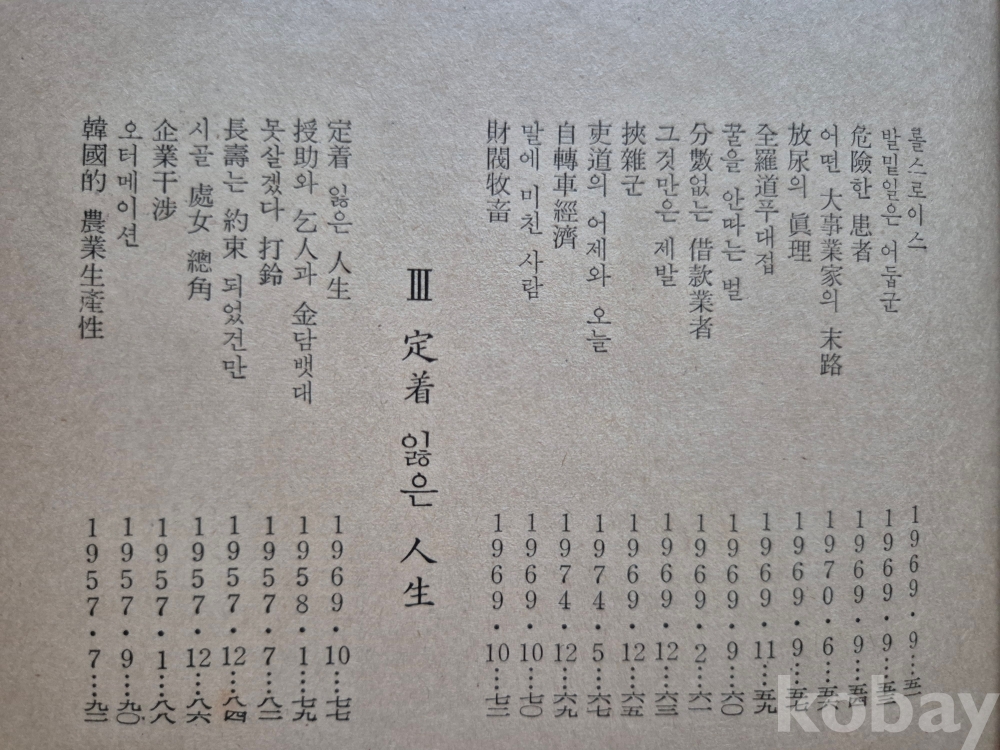 롤스로이스 1969·9…五一
발밑일은 어둡군 1969·9…五三
危險한 患者 1969·9…五四
어떤 大事業家의 末路 1970·6…五六
放尿의 眞理 1969·9…五七
全羅道푸대접 1969·11…五九
꿀을 안따는 벌 1969·9…六〇
分數없는 借款業者 1969·2…六一
그것만은 제발 1969·12…六三
挾雜군 1969·12…六五
吏道의 어제와 오늘 1974·5…六七
自轉車經濟 1974·12…六九
말에 미친 사람 1969·10…七〇
財閥牧畜 1969·10…七二
Ⅲ 定着 잃은 人生
定着 잃은 人生 1969·10…七七
援助와 乞人과 金담뱃대 1958·1…七九
못살겠다 打鈴 1957·7…八二
長壽는 約束 되었건만 1957·12…八四
시골 處女 總角 1957·12…八六
企業干涉 1957·1…八八
오터메이션 1957·9…九〇
韓國的 農業生產性 1957·7…九二
kobay